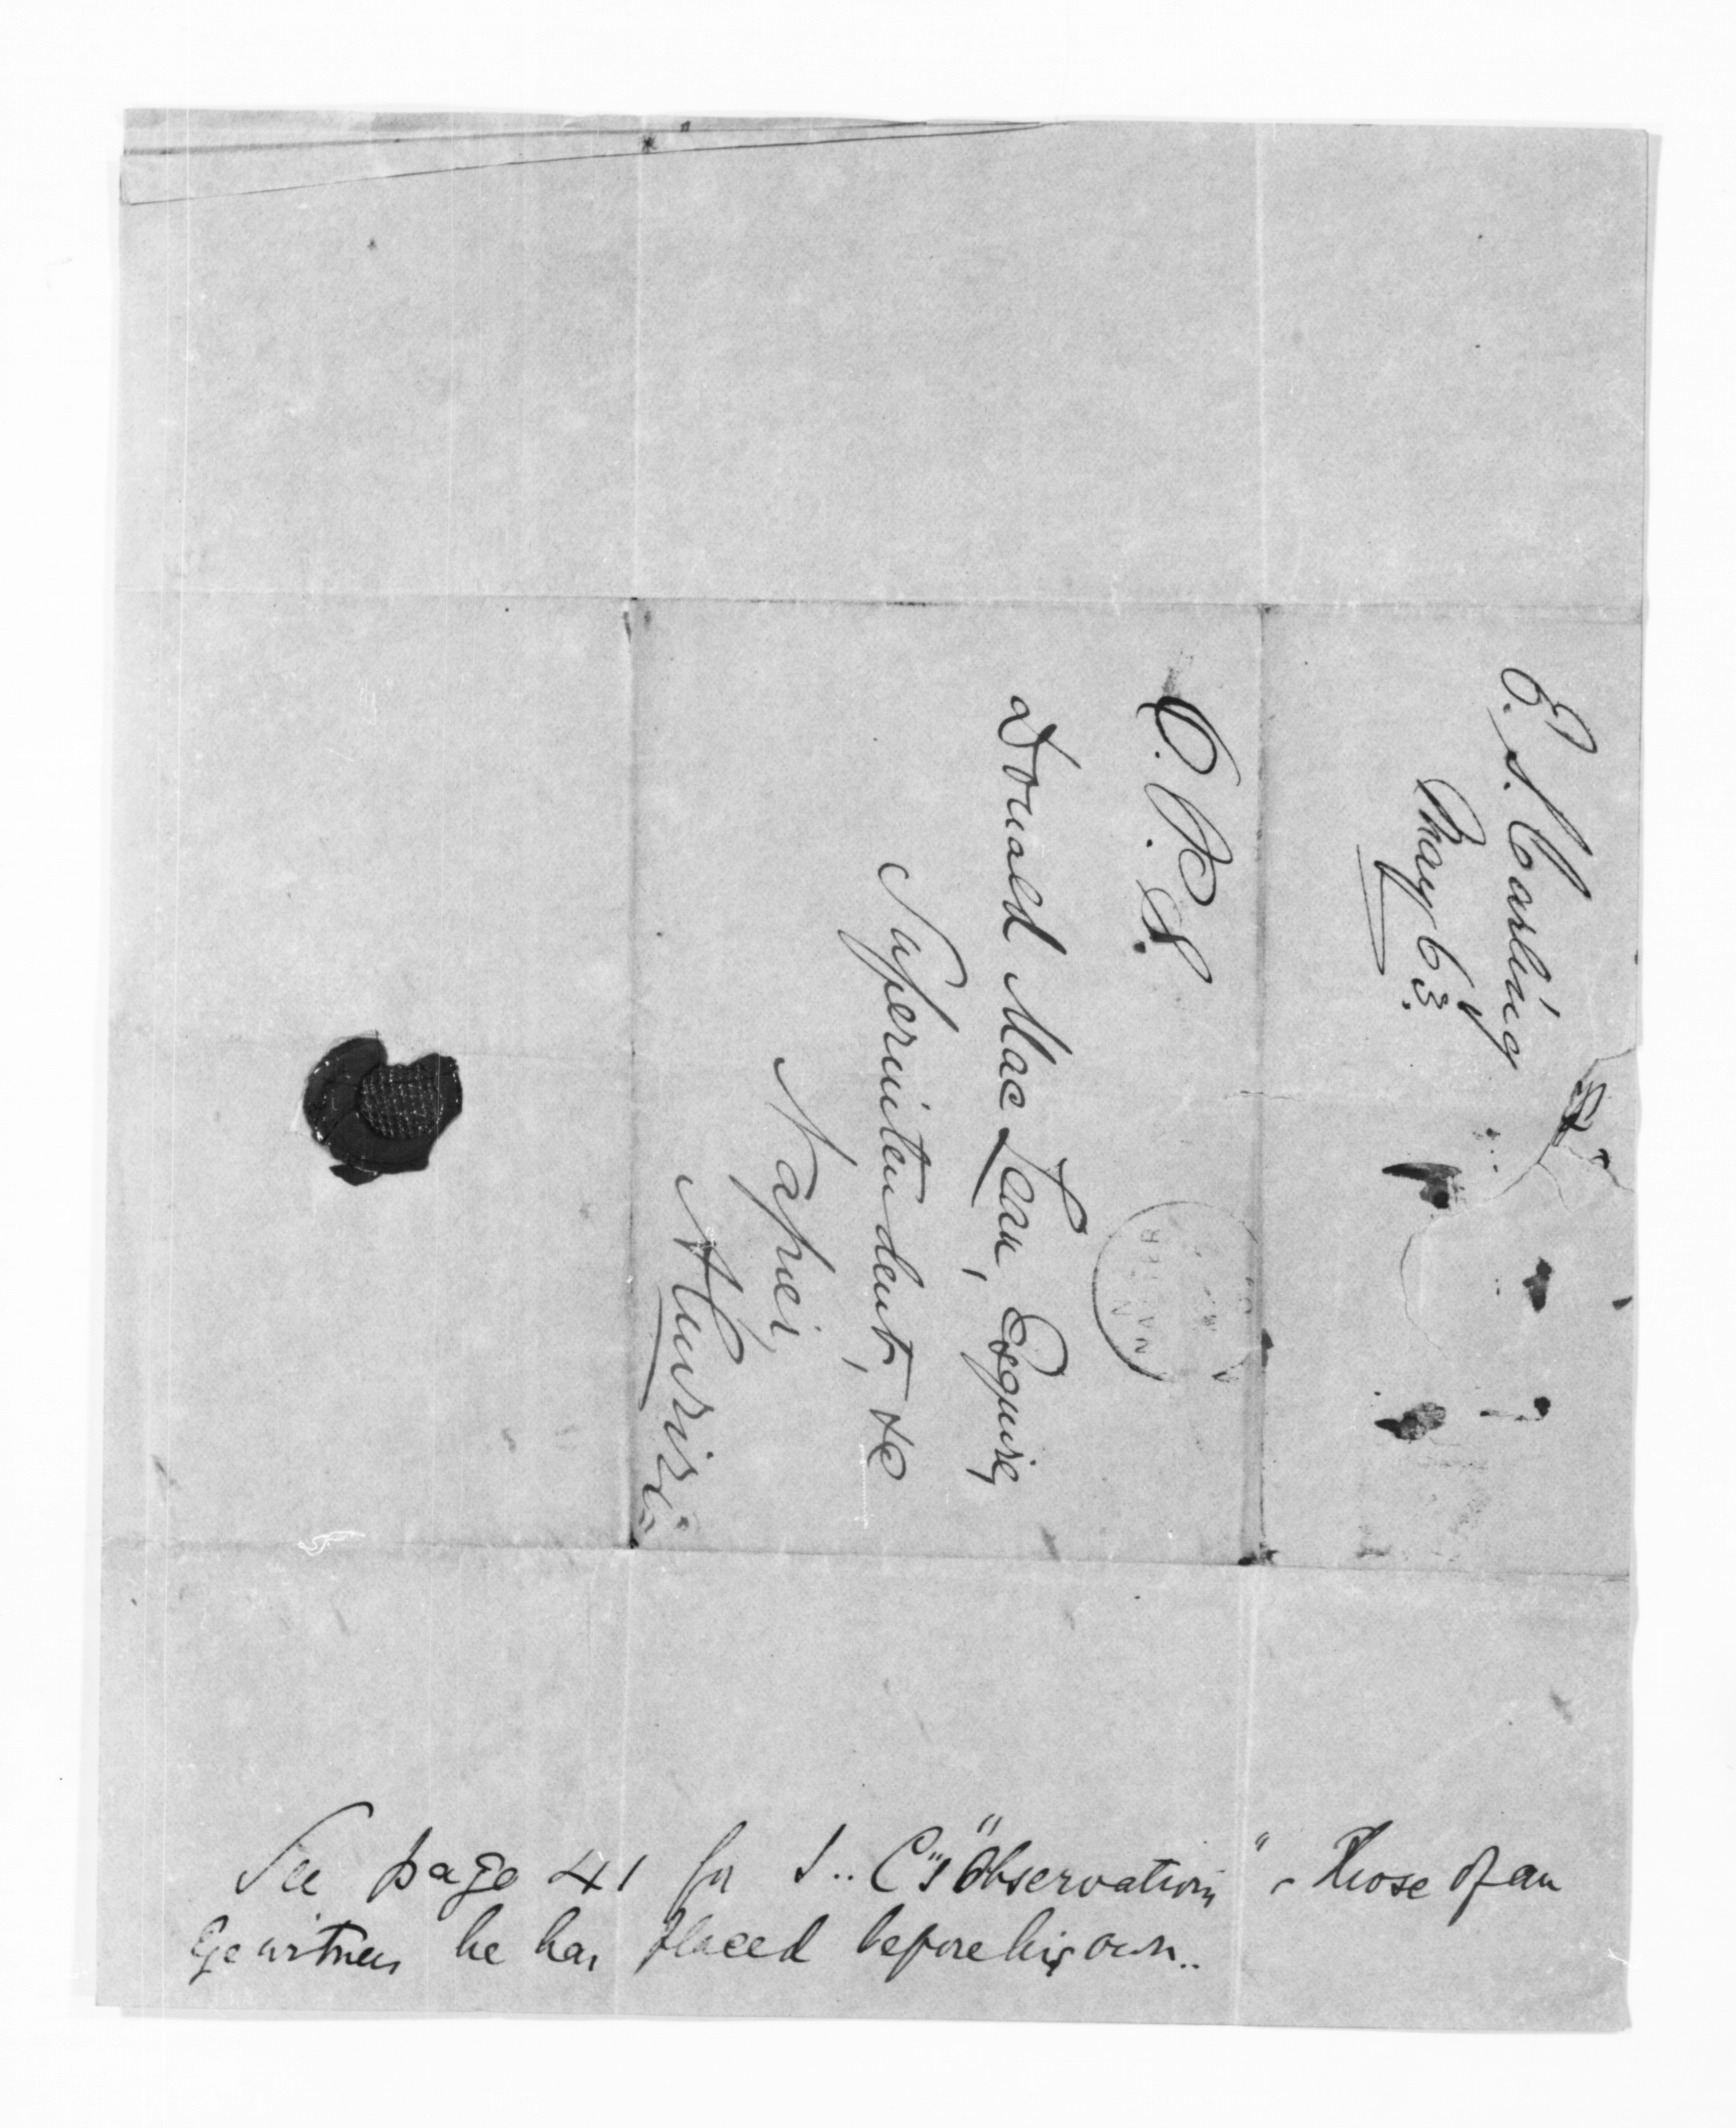 E. S. Curling
May 63.
O. P. S.
Donald Mac Lean, Esquire,
Superintendent, &c
Napier,
Ahuriri.
See page 41 for S.. C's "Observations" - Those of an
Eye witness he has placed before his own..